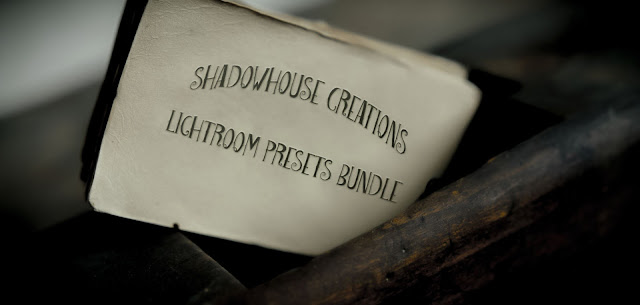 SHADOWHOUSE CREATIONS
LIGHTROOM PRESETS BUNDLE